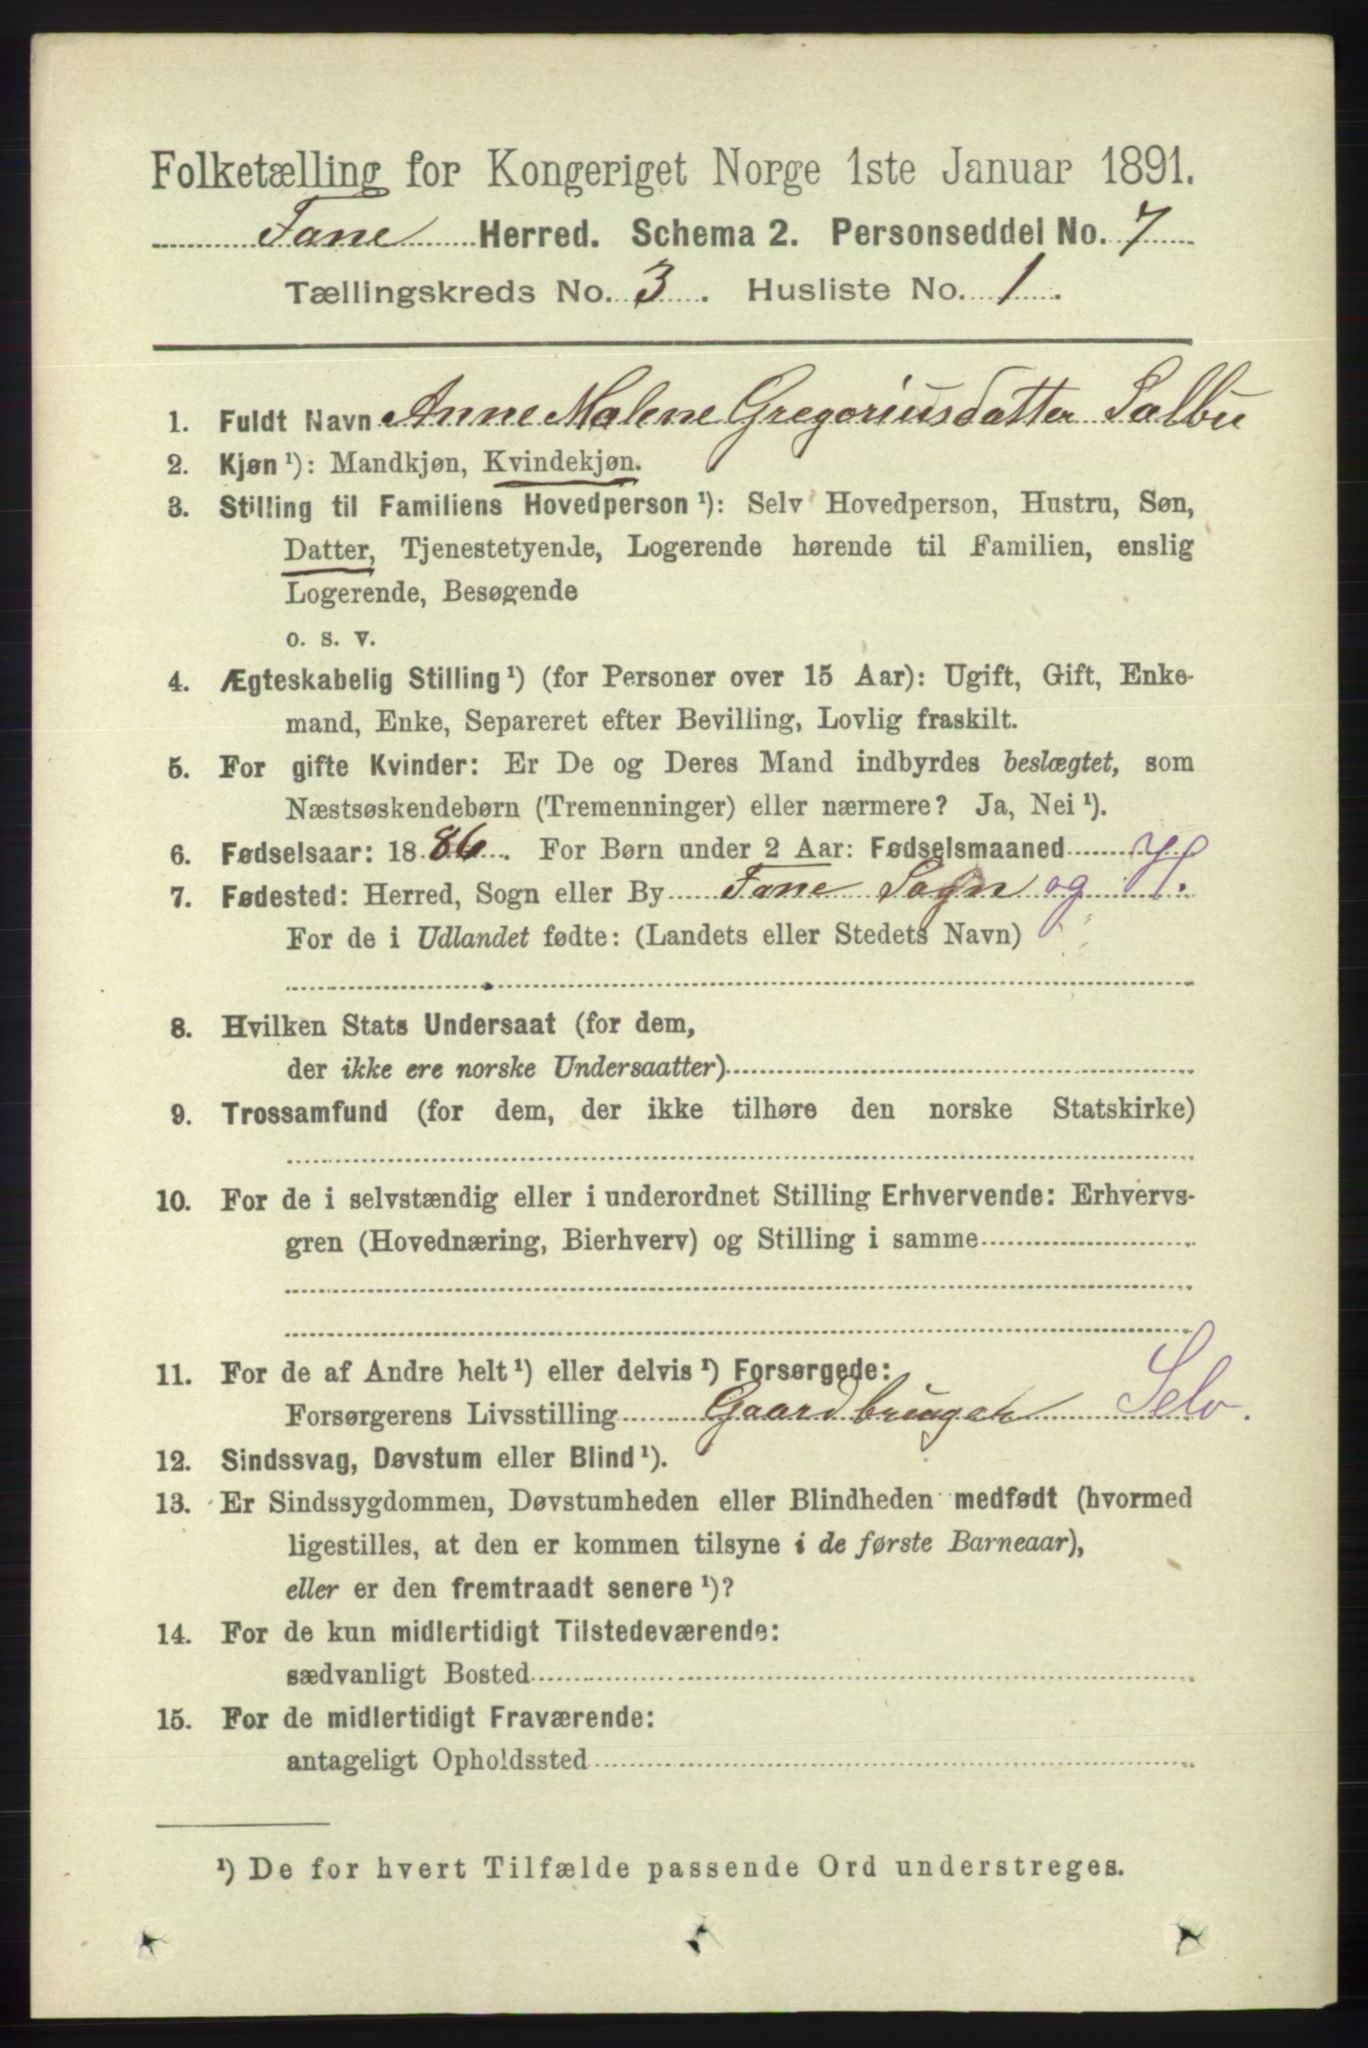 Folketælling for Kongeriget Norge 1ste Januar 1891.
Fane Herred. Schema 2. Personseddel No. 7
Tællingskreds No. 3. Husliste No. 1.
1. Fuldt Navn Anne Malene Gregoriusdatter Salbu
2. Kjøn ¹): Mandkjøn, Kvindekjøn.
3. Stilling til Familiens Hovedperson ¹): Selv Hovedperson, Hustru, Søn,
Datter, Tjenestetyende, Logerende hørende til Familien, enslig
Logerende, Besøgende
o. s. v.
4. Ægteskabelig Stilling ¹) (for Personer over 15 Aar): Ugift, Gift, Enke-
mand, Enke, Separeret efter Bevilling, Lovlig fraskilt.
5. For gifte Kvinder: Er De og Deres Mand indbyrdes beslægtet, som
Næstsøskendebørn (Tremenninger) eller nærmere? Ja, Nei ¹).
6. Fødselsaar: 1886. For Børn under 2 Aar: Fødselsmaaned
7. Fødested: Herred, Sogn eller By Fane Sogn og H.
For de i Udlandet fødte: (Landets eller Stedets Navn)
8. Hvilken Stats Undersaat (for dem,
der ikke ere norske Undersaatter)
9. Trossamfund (for dem, der ikke tilhøre den norske Statskirke)
10. For de i selvstændig eller i underordnet Stilling Erhvervende: Erhvervs-
gren (Hovednæring, Bierhverv) og Stilling i samme
11. For de af Andre helt ¹) eller delvis ¹) Forsørgede:
Forsørgerens Livsstilling Gaardbruger Selv.
12. Sindssvag, Døvstum eller Blind ¹).
13. Er Sindssygdommen, Døvstumheden eller Blindheden medfødt (hvormed
ligestilles, at den er kommen tilsyne i de første Barneaar),
eller er den fremtraadt senere ¹)?
14. For de kun midlertidigt Tilstedeværende:
sædvanligt Bosted
15. For de midlertidigt Fraværende:
antageligt Opholdssted
¹) De for hvert Tilfælde passende Ord understreges.